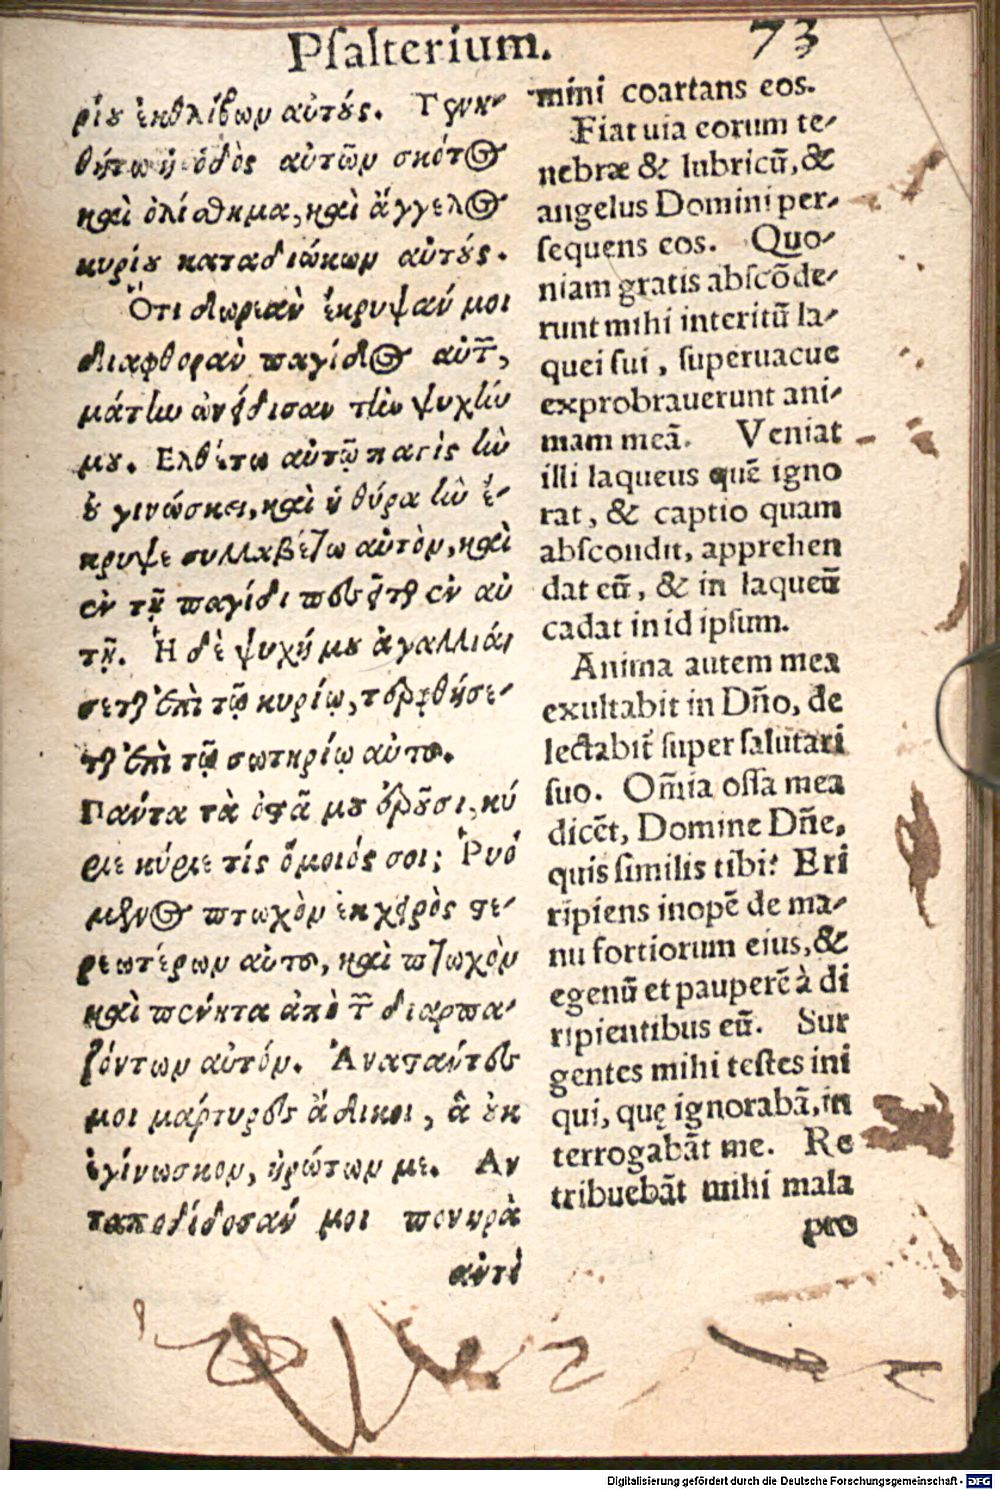 Psalterium. 73
ρίου ἐκθλίβων αὐτούς. Γενη-
θήτω ἡ ὁδὸς αὐτῶν σκότος
καὶ ὀλίσθημα, καὶ ἄγγελος
κυρίου καταδιώκων αὐτούς.
Ὅτι δωρεὰν ἔκρυψαν μοι
διαφθορὰν παγίδος αὐτῶν,
μάτην ὠνείδισαν τὴν ψυχήν
μου. Ελθέτω αὐτῷ παγὶς ἣν
οὐ γινώσκει, καὶ ἡ θύρα ἣν ἔ-
κρυψε συλλαβέτω αὐτὸν, καὶ
ἐν τῇ παγίδι πεσεῖται ἐν αὐ
τῇ. Ἡ δὲ ψυχή μου ἀγαλλιά-
σεται ἐπὶ τῷ κυρίῳ, τερφθήσε-
ται ἐπὶ τῷ σωτηρίῳ αὐτοῦ.
Πάντα τὰ ὀστᾶ μου ἐροῦσι, κύ
ριε κύριε τίς ὅμοιός σοι; Ῥυό
μενος πτωχὸν ἐκ χειρὸς στε-
ρεωτέρων αὐτοῦ, καὶ πτωχὸν
καὶ πένητα ἀπὸ τῶν διαρπα-
ζόντων αὐτόν. Ἀναστάντες
μοι μάρτυρες ἄδικοι, ἃ οὐκ
ἐγίνωσκον, ἠρώτων με. Αν
ταπεδίδοσάν μοι πονηρὰ
αὐτὶ
mini coartans eos.
Fiat uia eorum te-
nebræ & lubricū, &
angelus Domini per-
sequens eos. Quo-
niam gratis abscōde-
runt mihi interitū la-
quei sui, superuacue
exprobrauerunt ani-
mam meā. Veniat
illi laqueus quē igno
rat, & captio quam
abscondit, apprehen
dat eū, & in laqueū
cadat in id ipsum.
Anima autem mea
exultabit in Dño, de
lectabit super salutari
suo. Om̃ia ossa mea
dicēt, Domine Dñe,
quis similis tibi? Eri
ripiens inopē de ma-
nu fortiorum eius, &
egenū et pauperē à di
ripientibus eū. Sur
gentes mihi testes ini
qui, quę ignorabā, in
terrogabāt me. Re
tribuebāt mihi mala
pro
Digitalisierung gefördert durch die Deutsche Forschungsgemeinschaft - DFG